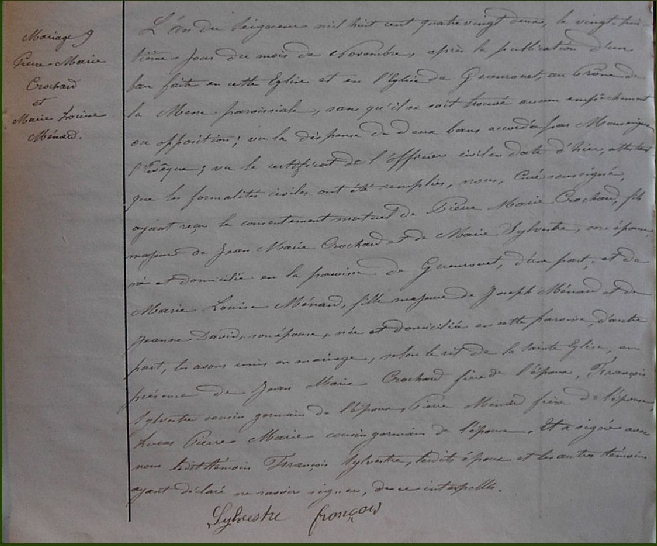 Mariage
Pierre-Marie
Crochard
et
Marie Louise
Ménard.
L'an du Seigneur mil huit cent quatre vingt douze, le vingt-huitième
jour du mois de Novembre, après la publication d'un
ban faite en cette Eglise et en l'Eglise de au Prône de
la Messe paroissiale, sans qu'il se soit trouvé aucun empêchement
ou opposition; vu la dispense de deux bans accordée par Monseigneur
l'Evêque; vu le certificat de l'officier civil en date d'hier, attestant
que les formalités civiles ont été remplies, nous, Curé soussigné,
ayant reçu le consentement mutuel de Pierre Marie Crochard, fils
majeur de Jean Marie Crochard et de Marie Sylvestre, son épouse,
né et domicilié en la paroisse de d'une part; et de
Marie Louise Ménard, fille majeure de Joseph Ménard et de
Jeanne David, son épouse, née et domiciliée en cette paroisse, d'autre
part, les avons unis en mariage, selon le rit de la Sainte Eglise, en
présence de Jean Marie Crochard frère de l'époux, François
Sylvestre cousin germain de l'époux, Pierre Menard frère de l'épouse
Lucas Pierre-Marie cousin germain de l'épouse. Et a signé avec
nous ledit témoin François Sylvestre, lesdits époux et les autres témoins
ayant déclaré ne savoir signer, de ce interpellés.
Sylvestre françois